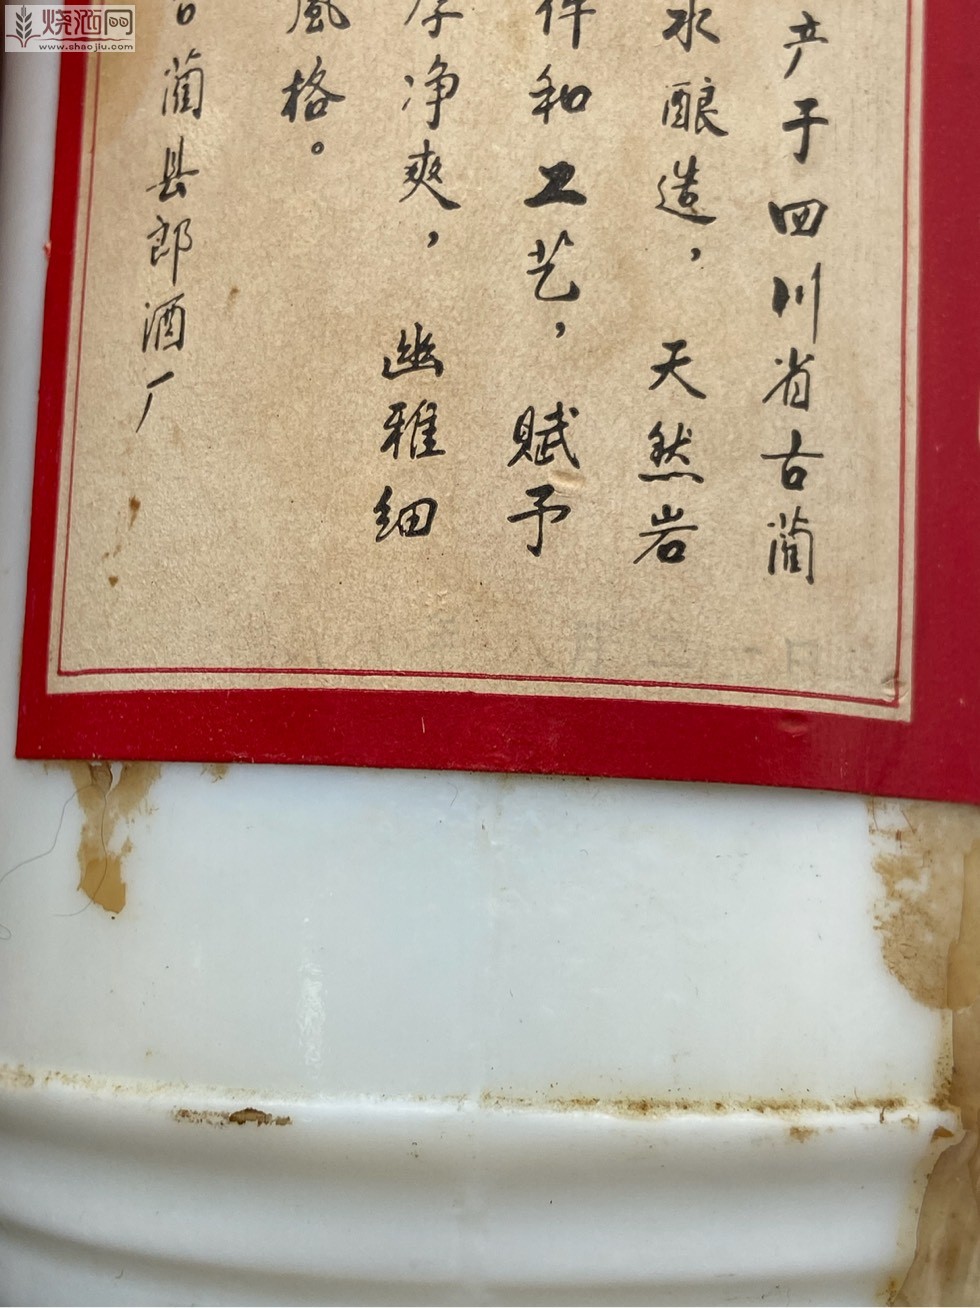 烧酒网
www.shaojiu.com
产于四川省古蔺
水酿造，天然岩
件和工艺，赋予
净爽，幽雅细
風格。
蔺县郎酒厂